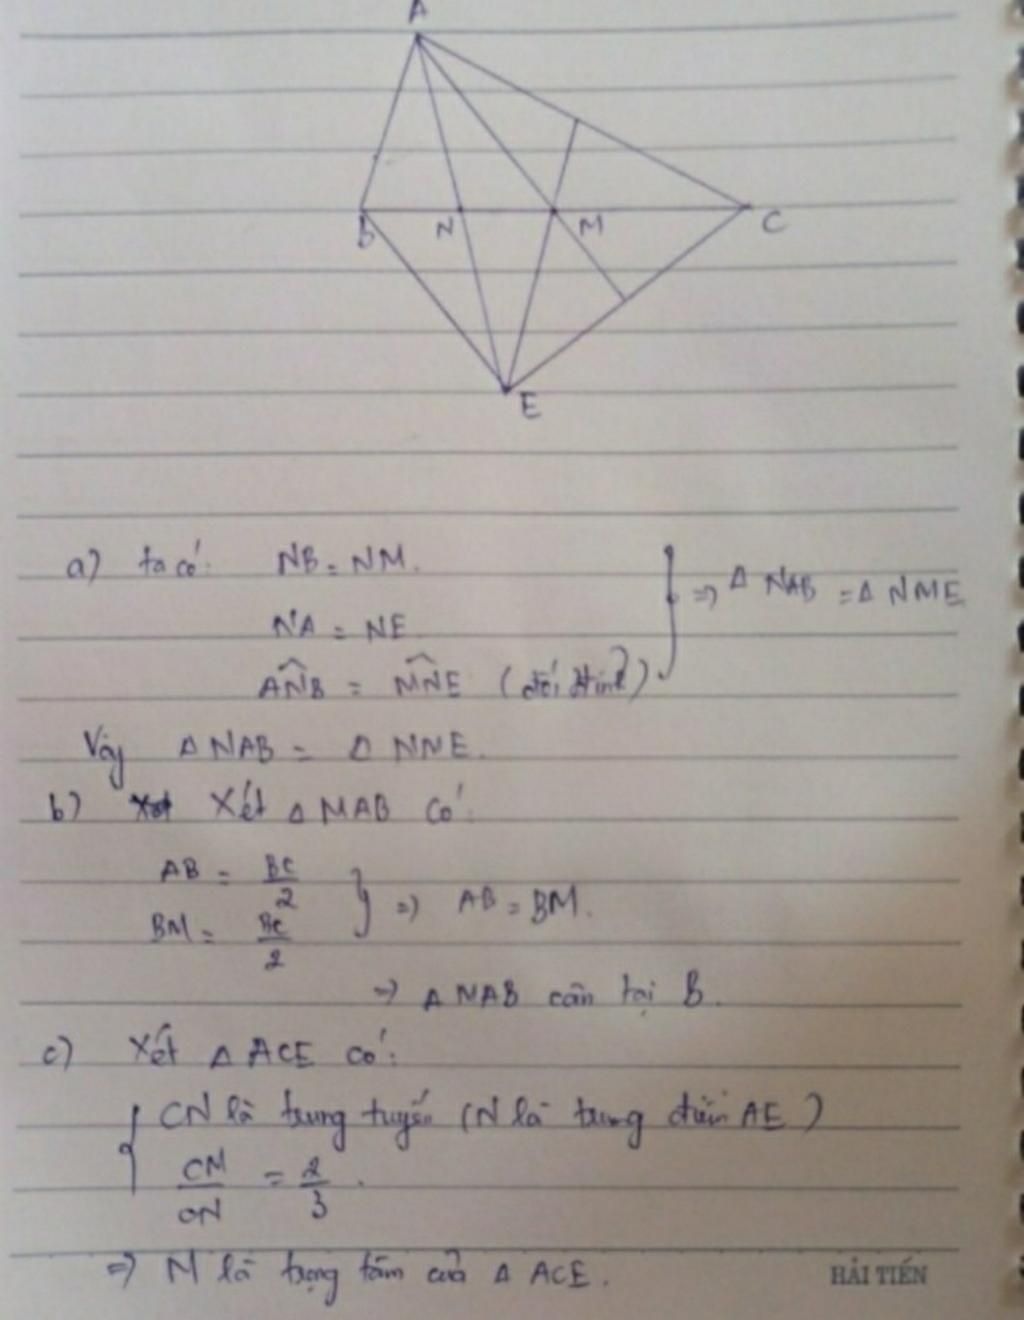 A
B
N
M
C
E
a) ta có: NB = NM.
NA = NE
ANB = MNE (đối đỉnh)
=> Δ NAB = Δ NME
Vậy Δ NAB = Δ NNE.
b) Xét Δ MAB có:
AB = BC/2
BM = BC/2
=> AB = BM.
=> Δ MAB cân tại B.
c) Xét Δ ACE có:
CN là trung tuyến (N là trung điểm AE)
CM/CN = 2/3.
=> M là trọng tâm của Δ ACE.
HẢI TIẾN